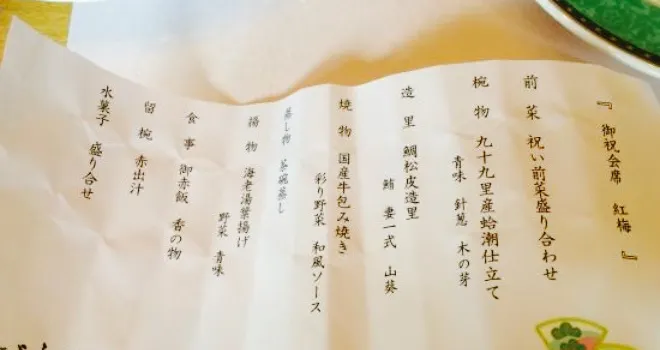 『 御祝会席 紅梅 』
前菜 祝い前菜盛り合わせ
椀物 九十九里産蛤潮仕立て
青味 針葱 木の芽
造里 鯛松皮造里
鮪 妻一式 山葵
焼物 国産牛包み焼き
彩り野菜 和風ソース
蒸し物 茶碗蒸し
揚物 海老湯葉揚げ
野菜 青味
食事 御赤飯 香の物
留椀 赤出汁
水菓子 盛り合せ